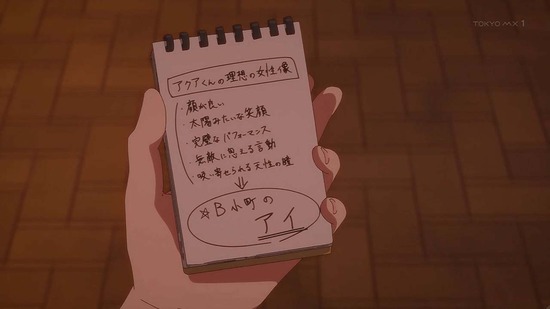 TOKYO MX 1
アクアくんの理想の女性像
・顔が良い
・太陽みたいな笑顔
・完璧なパフォーマンス
・無敵に思える言動
・吸い寄せられる天性の瞳
⇓
☆B小町の
アイ